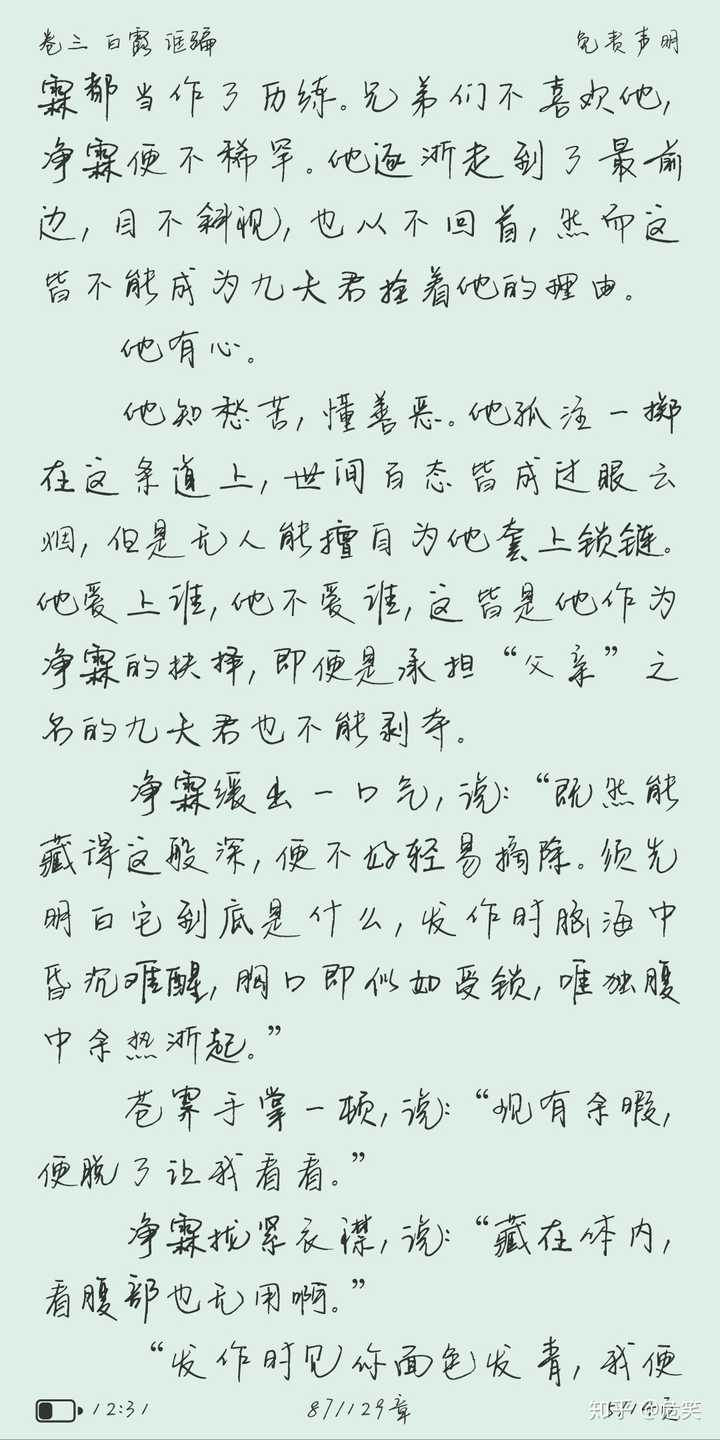 卷三 白露 诓骗 免责声明
霖都当作了历练。兄弟们不喜欢他，
净霖便不稀罕。他逐渐走到了最前
边，目不斜视，也从不回首，然而这
皆不能成为九天君拴着他的理由。
他有心。
他知愁苦，懂善恶。他孤注一掷
在这条道上，世间百态皆成过眼云
烟，但是无人能擅自为他套上锁链。
他爱上谁，他不爱谁，这皆是他作为
净霖的抉择，即便是承担“父亲”之
名的九天君也不能剥夺。
净霖缓出一口气，说：“既然能
藏得这般深，便不好轻易摘除。须先
明白它到底是什么，发作时脑海中
昏沉难醒，胸口即似如受锁，唯独腹
中余热渐起。”
苍霁手掌一顿，说：“现有余暇，
便脱了让我看看。”
净霖拢紧衣襟，说：“藏在体内，
看腹部也无用啊。”
“发作时见你面色发青，我便
12:31 87/129章
知乎 @危笑